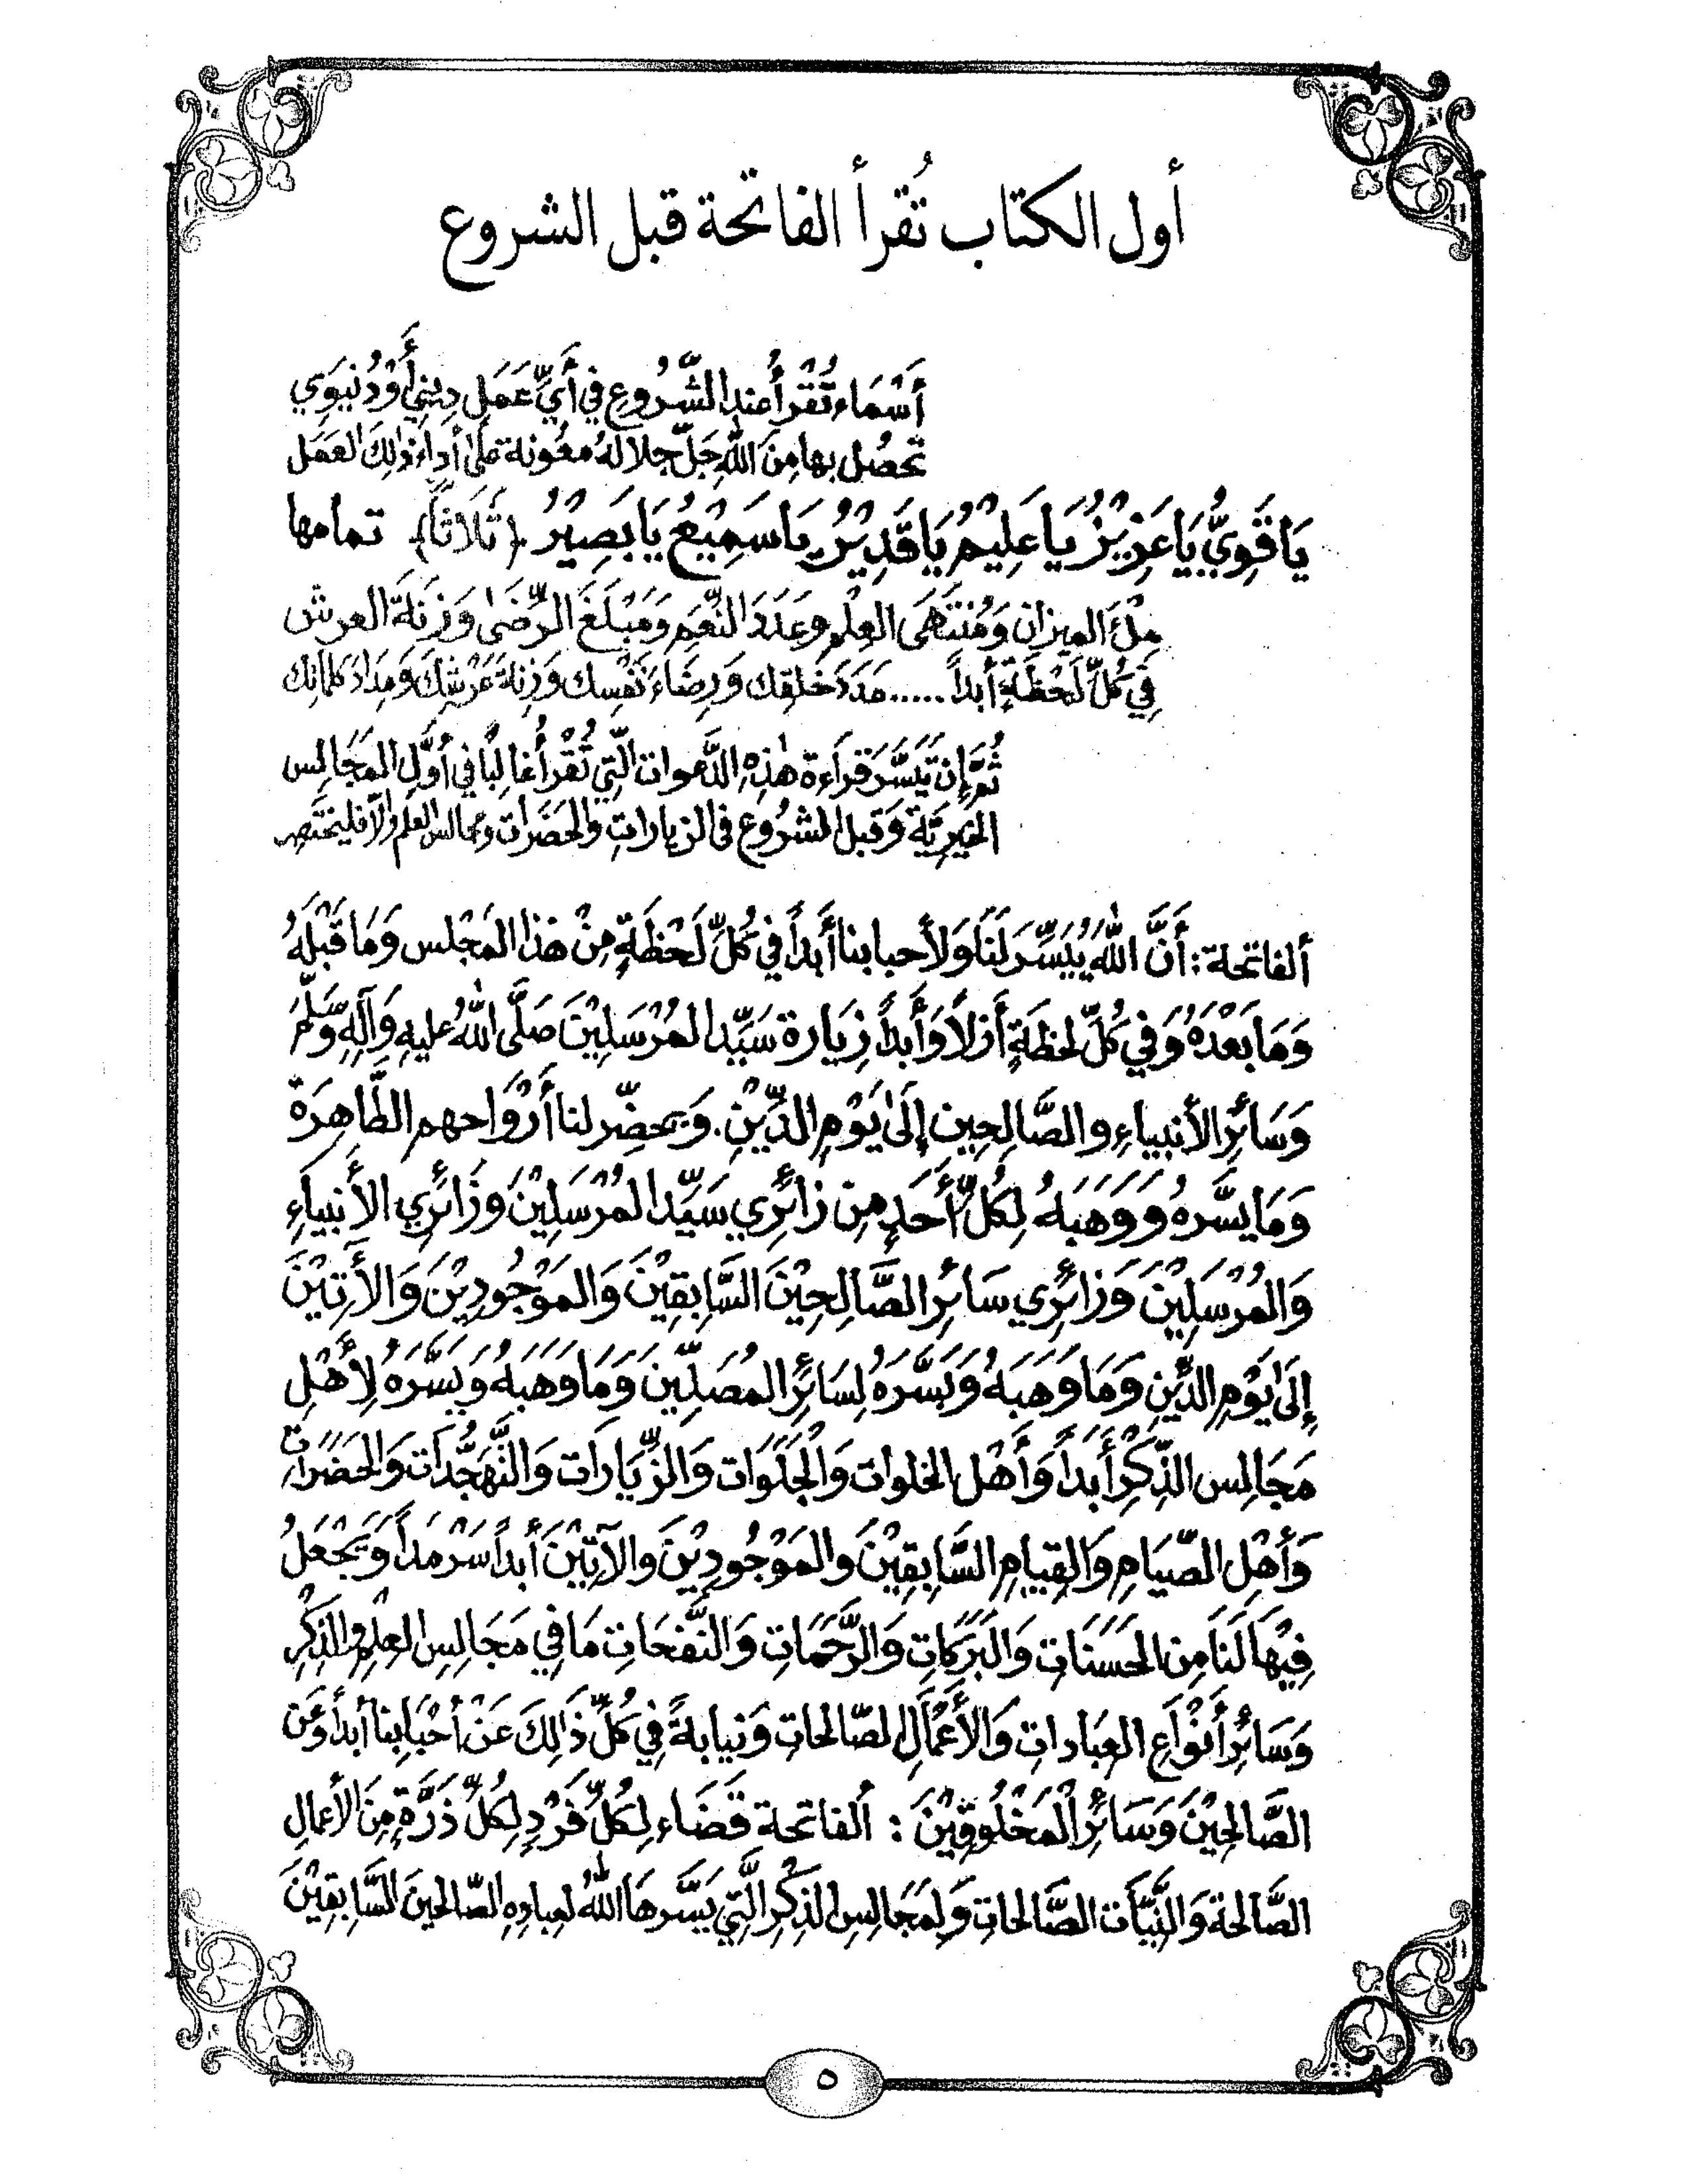 أول الكتاب تُقرأ الفاتحة قبل الشروع
أَسْمَاء تُقْرَأُ عند الشُّرُوعِ في أَيِّ عَمَلٍ دِينِيٍّ أَوْ دُنْيَوِي
تحصُل بها مِنَ اللهِ جَلَّ جلالهُ معُونة على أداء ذٰلِكَ العَمَل
يَا قَوِيُّ يَا عَزِيْزُ يَا عَلِيْمُ يَا قَدِيْرُ يَا سَمِيْعُ يَا بَصِيْرُ (ثَلَاثاً) تمامها
مِلْءَ الميزان وَمُنتَهَى العِلْم وعَدَدَ النِّعَم وَمَبْلَغَ الرِّضَى وَزِنَةَ العرش
فِي كُلِّ لَحْظَةٍ أبداً ..... عَدَدَ خَلقِك وَرِضَاءَ نَفْسِك وَزِنَةَ عَرْشِكَ وَمِدَادَ كلماتك
ثُمَّ إِن تَيَسَّرَ قراءة هٰذِهِ الدَّعوات الَّتِي تُقْرَأُ غالبًا في أَوَّلِ المَجَالِس
الخَيْرِيَّة وَقبل الشرُوع في الزيارات والحَضَرات ومجالس العلم وإلَّا فليختَصِر
ألفاتحة : أَنَّ اللهَ يُيَسِّرَ لَنَا وَلأحبابنا أَبداً في كُلِّ لَحْظَةٍ مِنْ هٰذا المَجْلس وَمَا قَبْلَهُ
وَمَا بَعْدَهُ وَفِي كُلِّ لحظَةٍ أَزلاً وَأَبداً زِيَارة سَيِّد المُرْسَلِيْنَ صَلَّى اللهُ عليهِ وَآلِهِ وَسَلَّمَ
وَسَائِرِ الأَنبياءِ والصَّالِحِين إِلَىٰ يَوْمِ الدِّيْنِ. وَيحضِّر لنا أَرْوَاحهم الطَّاهِرَةَ
وَمَا يسَّرهُ وَوَهَبَهُ لِكُلِّ أَحَدٍ مِن زائرِي سَيِّد المُرْسَلِيْنَ وَزَائرِي الأَنبيَاءِ
وَالمُرْسَلِيْنَ وَزَائِرِي سَائرِ الصَّالِحِيْنَ السَّابِقِيْنَ وَالمَوْجُودِيْنَ وَالأَتِيْنَ
إِلَىٰ يَوْمِ الدِّينِ وَمَا وَهَبَهُ وَيَسَّرَهُ لِسَائِرِ المُصَلِّينَ وَمَا وَهَبَهُ وَيَسَّرَهُ لِأَهْلِ
مَجَالِس الذِّكْرِ أَبَداً وَأَهْلِ الخلوات وَالجَلَوَات وَالزِّيَارَات وَالتَّهَجُّدَات وَالحَضَرَات
وَأَهْلِ الصِّيَامِ وَالقِيامِ السَّابِقِيْنَ والمَوْجُودِيْنَ والآتِيْنَ أَبداً سَرْمَداً وَيَجْعَلُ
فِيْهَا لَنَا مِنَ الحَسَنَات وَالبَرَكَاتِ وَالرَّحَمَات وَالنَّفَحَاتِ مَا فِي مَجَالِسِ العِلْمِ والذِّكْرِ
وَسَائِرِ أَنْوَاعِ العِبَاداتِ وَالأَعْمَالِ الصَّالحاتِ وَنِيابةً فِي كُلِّ ذَالِكَ عَنْ أَحْبَابِنا أَبداً وَعَن
الصَّالِحِيْنَ وَسَائِرِ الْمَخْلُوقِيْنَ : ألفاتحة قَضَاء لِكُلِّ فَرْدٍ لِكُلِّ ذَرَّةٍ مِنَ الأعمالِ
الصَّالحة وَالنِّيَّات الصَّالحاتِ وَلِمَجَالِسِ الذِّكْرِ الَّتِي يَسَّرهَا اللهُ لعبادِهِ الصَّالحينَ السَّابِقِيْنَ
٥